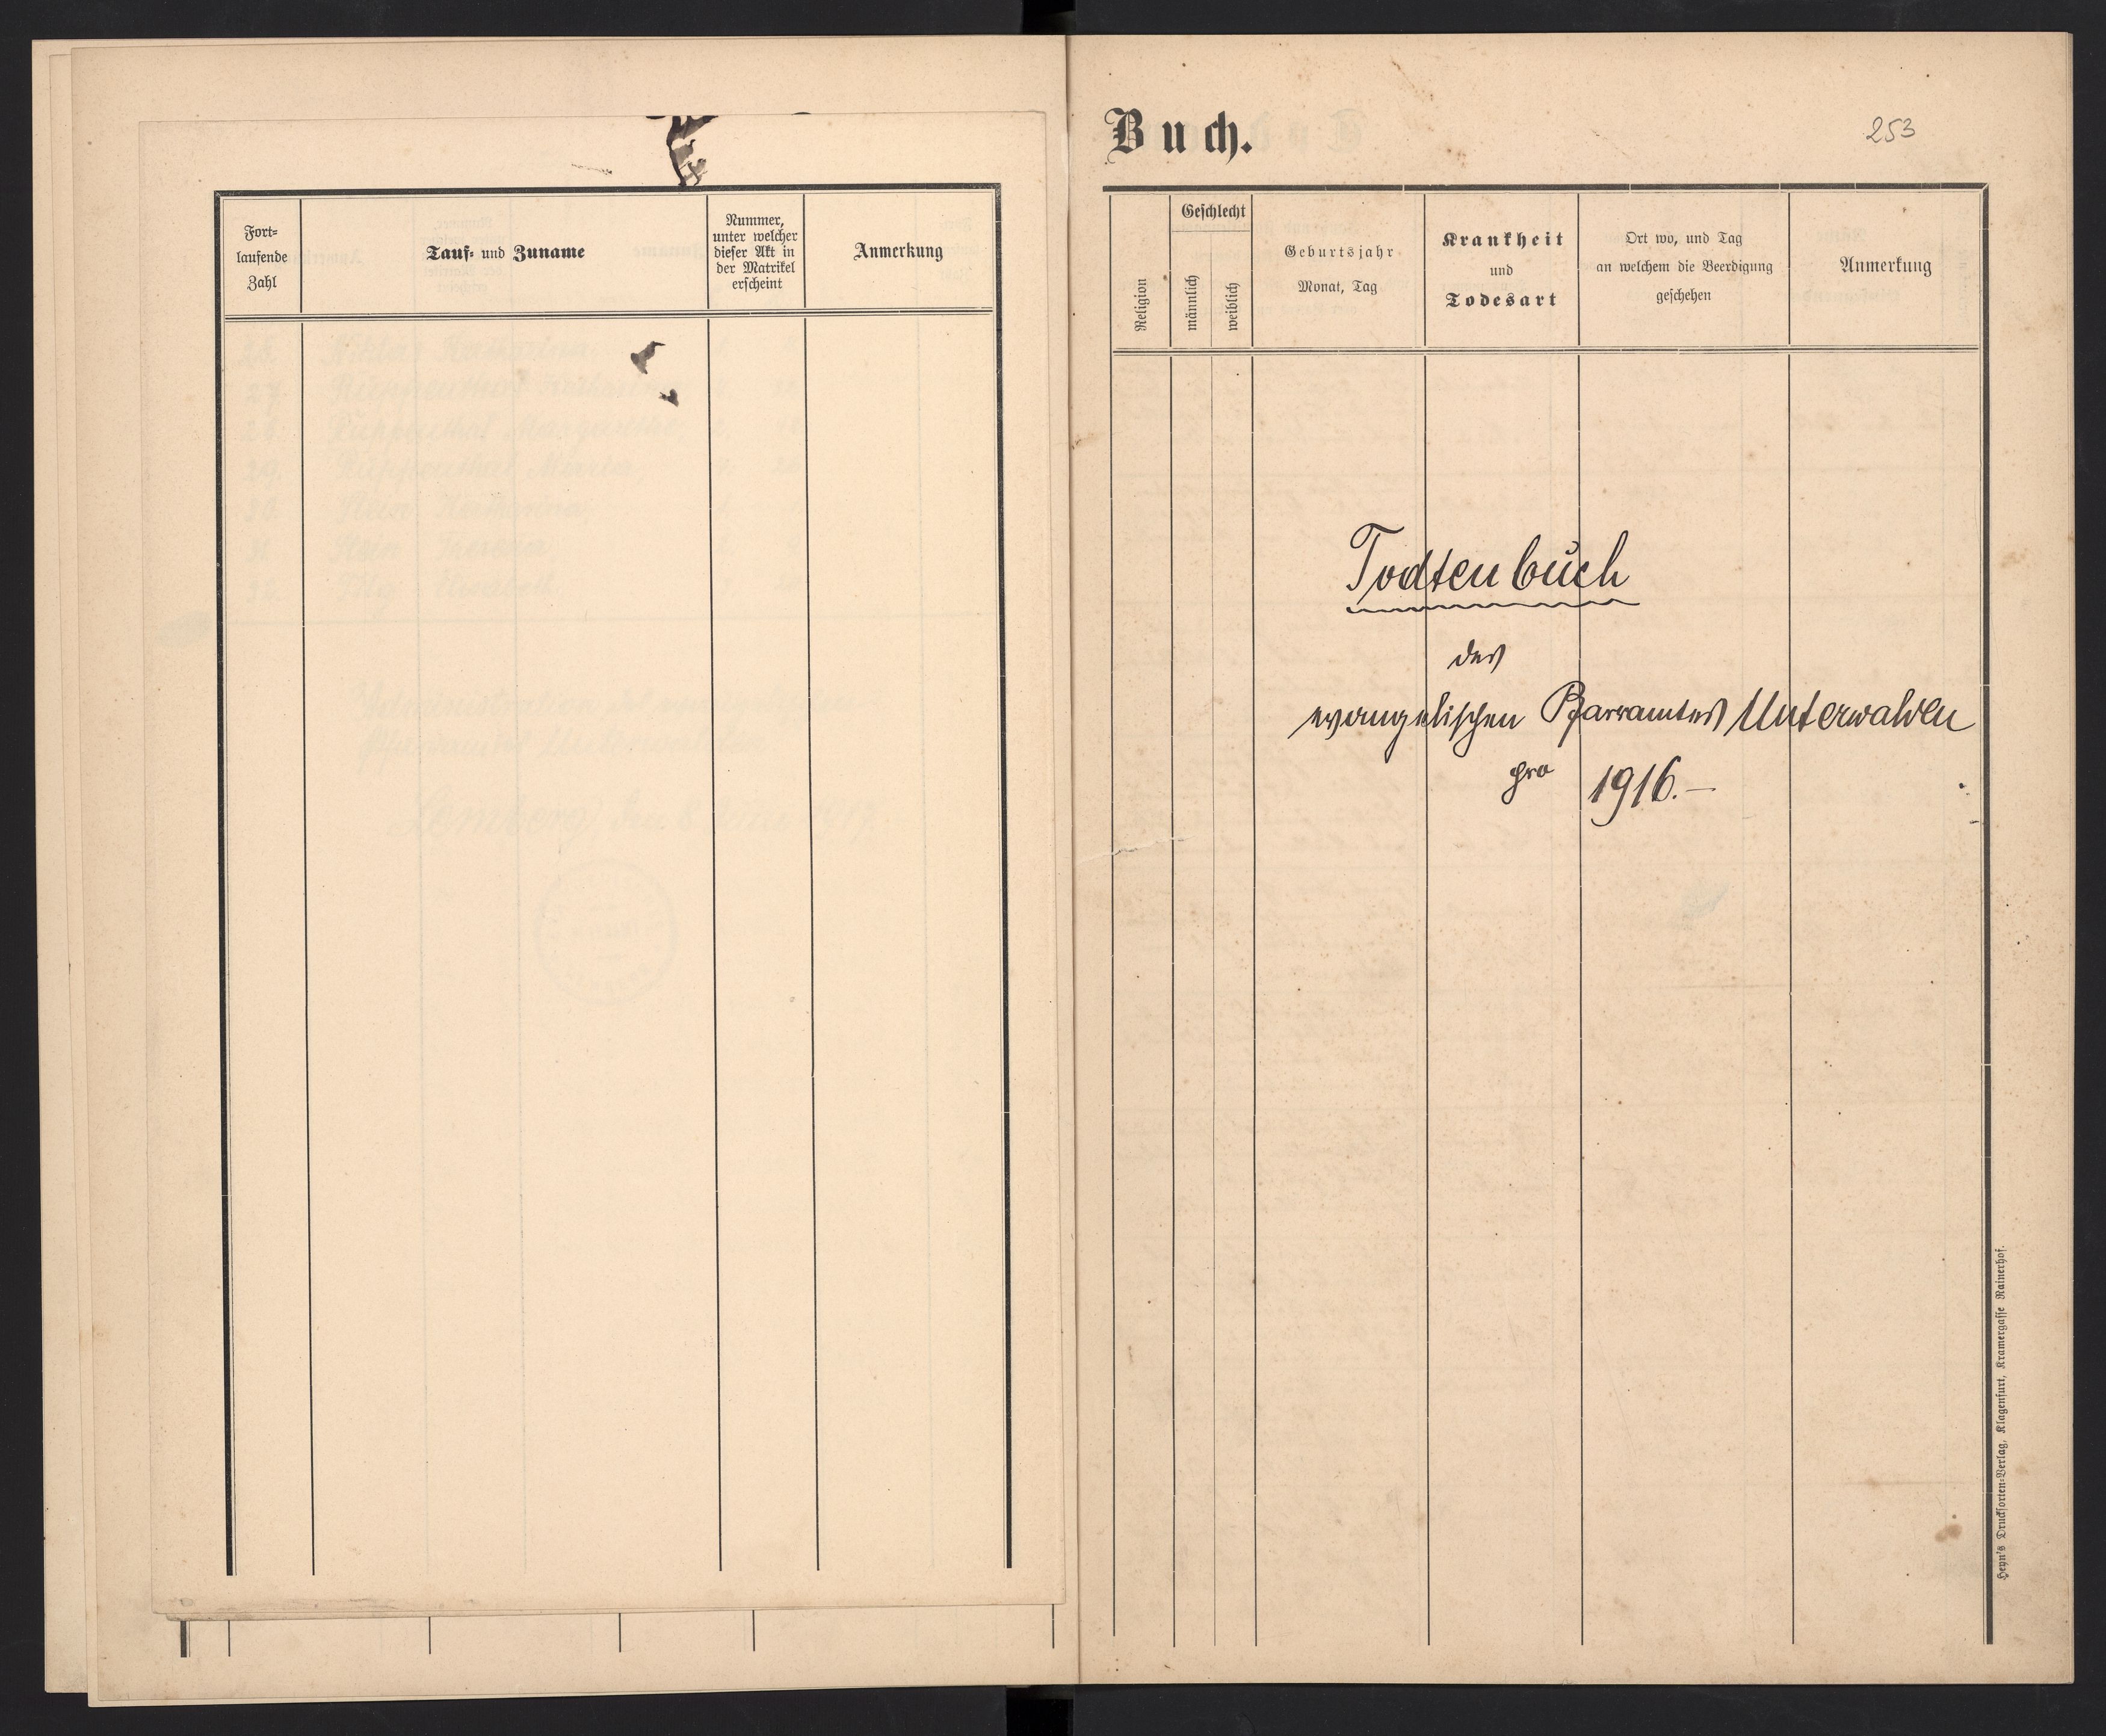 Fort-
laufende
Zahl
Tauf- und Zuname
Nummer,
unter welcher
dieser Akt in
der Matrikel
erscheint
Anmerkung
Buch.
253
Religion
Geschlecht
männlich
weiblich
Geburtsjahr
Monat, Tag
Krankheit
und
Todesart
Ort wo, und Tag
an welchem die Beerdigung
geschehen
Anmerkung
Todtenbuch
des
evangelischen Pfarramtes Unterwalden
pro 1916.—
Heyn's Drucksorten-Verlag, Klagenfurt, Kramergasse Rainerhof.
Lemberg, den 8